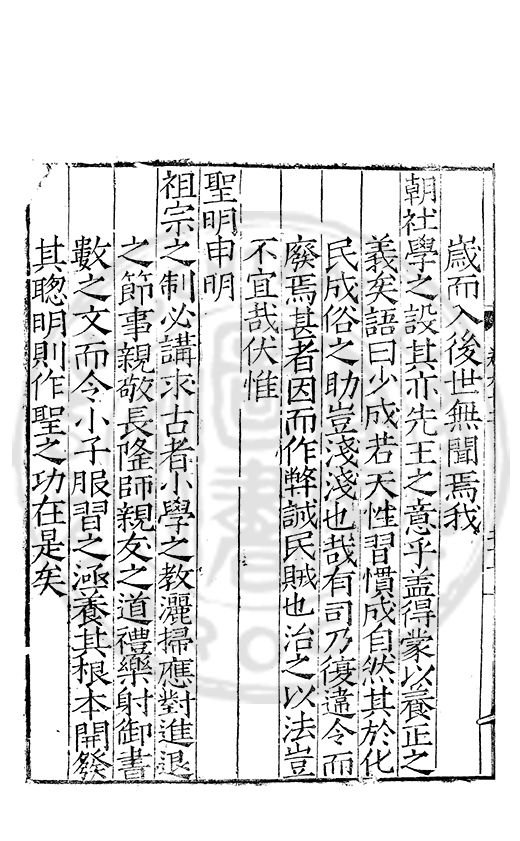 歲而入後世無聞焉我
朝社學之設其亦先王之意乎盖得蒙以養正之
義矣語曰少成若天性習慣成自然其於化
民成俗之助豈淺淺也哉有司乃復違令而
廢焉甚者因而作弊誠民賊也治之以法豈
不宜哉伏惟
聖明申明
祖宗之制必講求古者小學之教灑掃應對進退
之節事親敬長隆師親友之道禮樂射御書
數之文而令小子服習之涵養其根本開發
其聰明則作聖之功在是矣